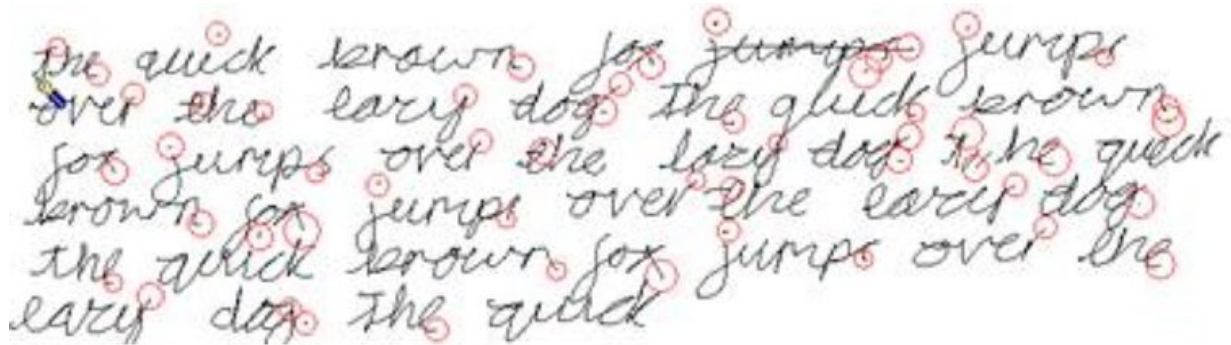 the quick brown fox jumps jumps
over the lazy dog The quick brown
fox jumps over the lazy dog T he quick
brown fox jumps over the lazy dog
the quick brown fox jumps over the
lazy dog The quick